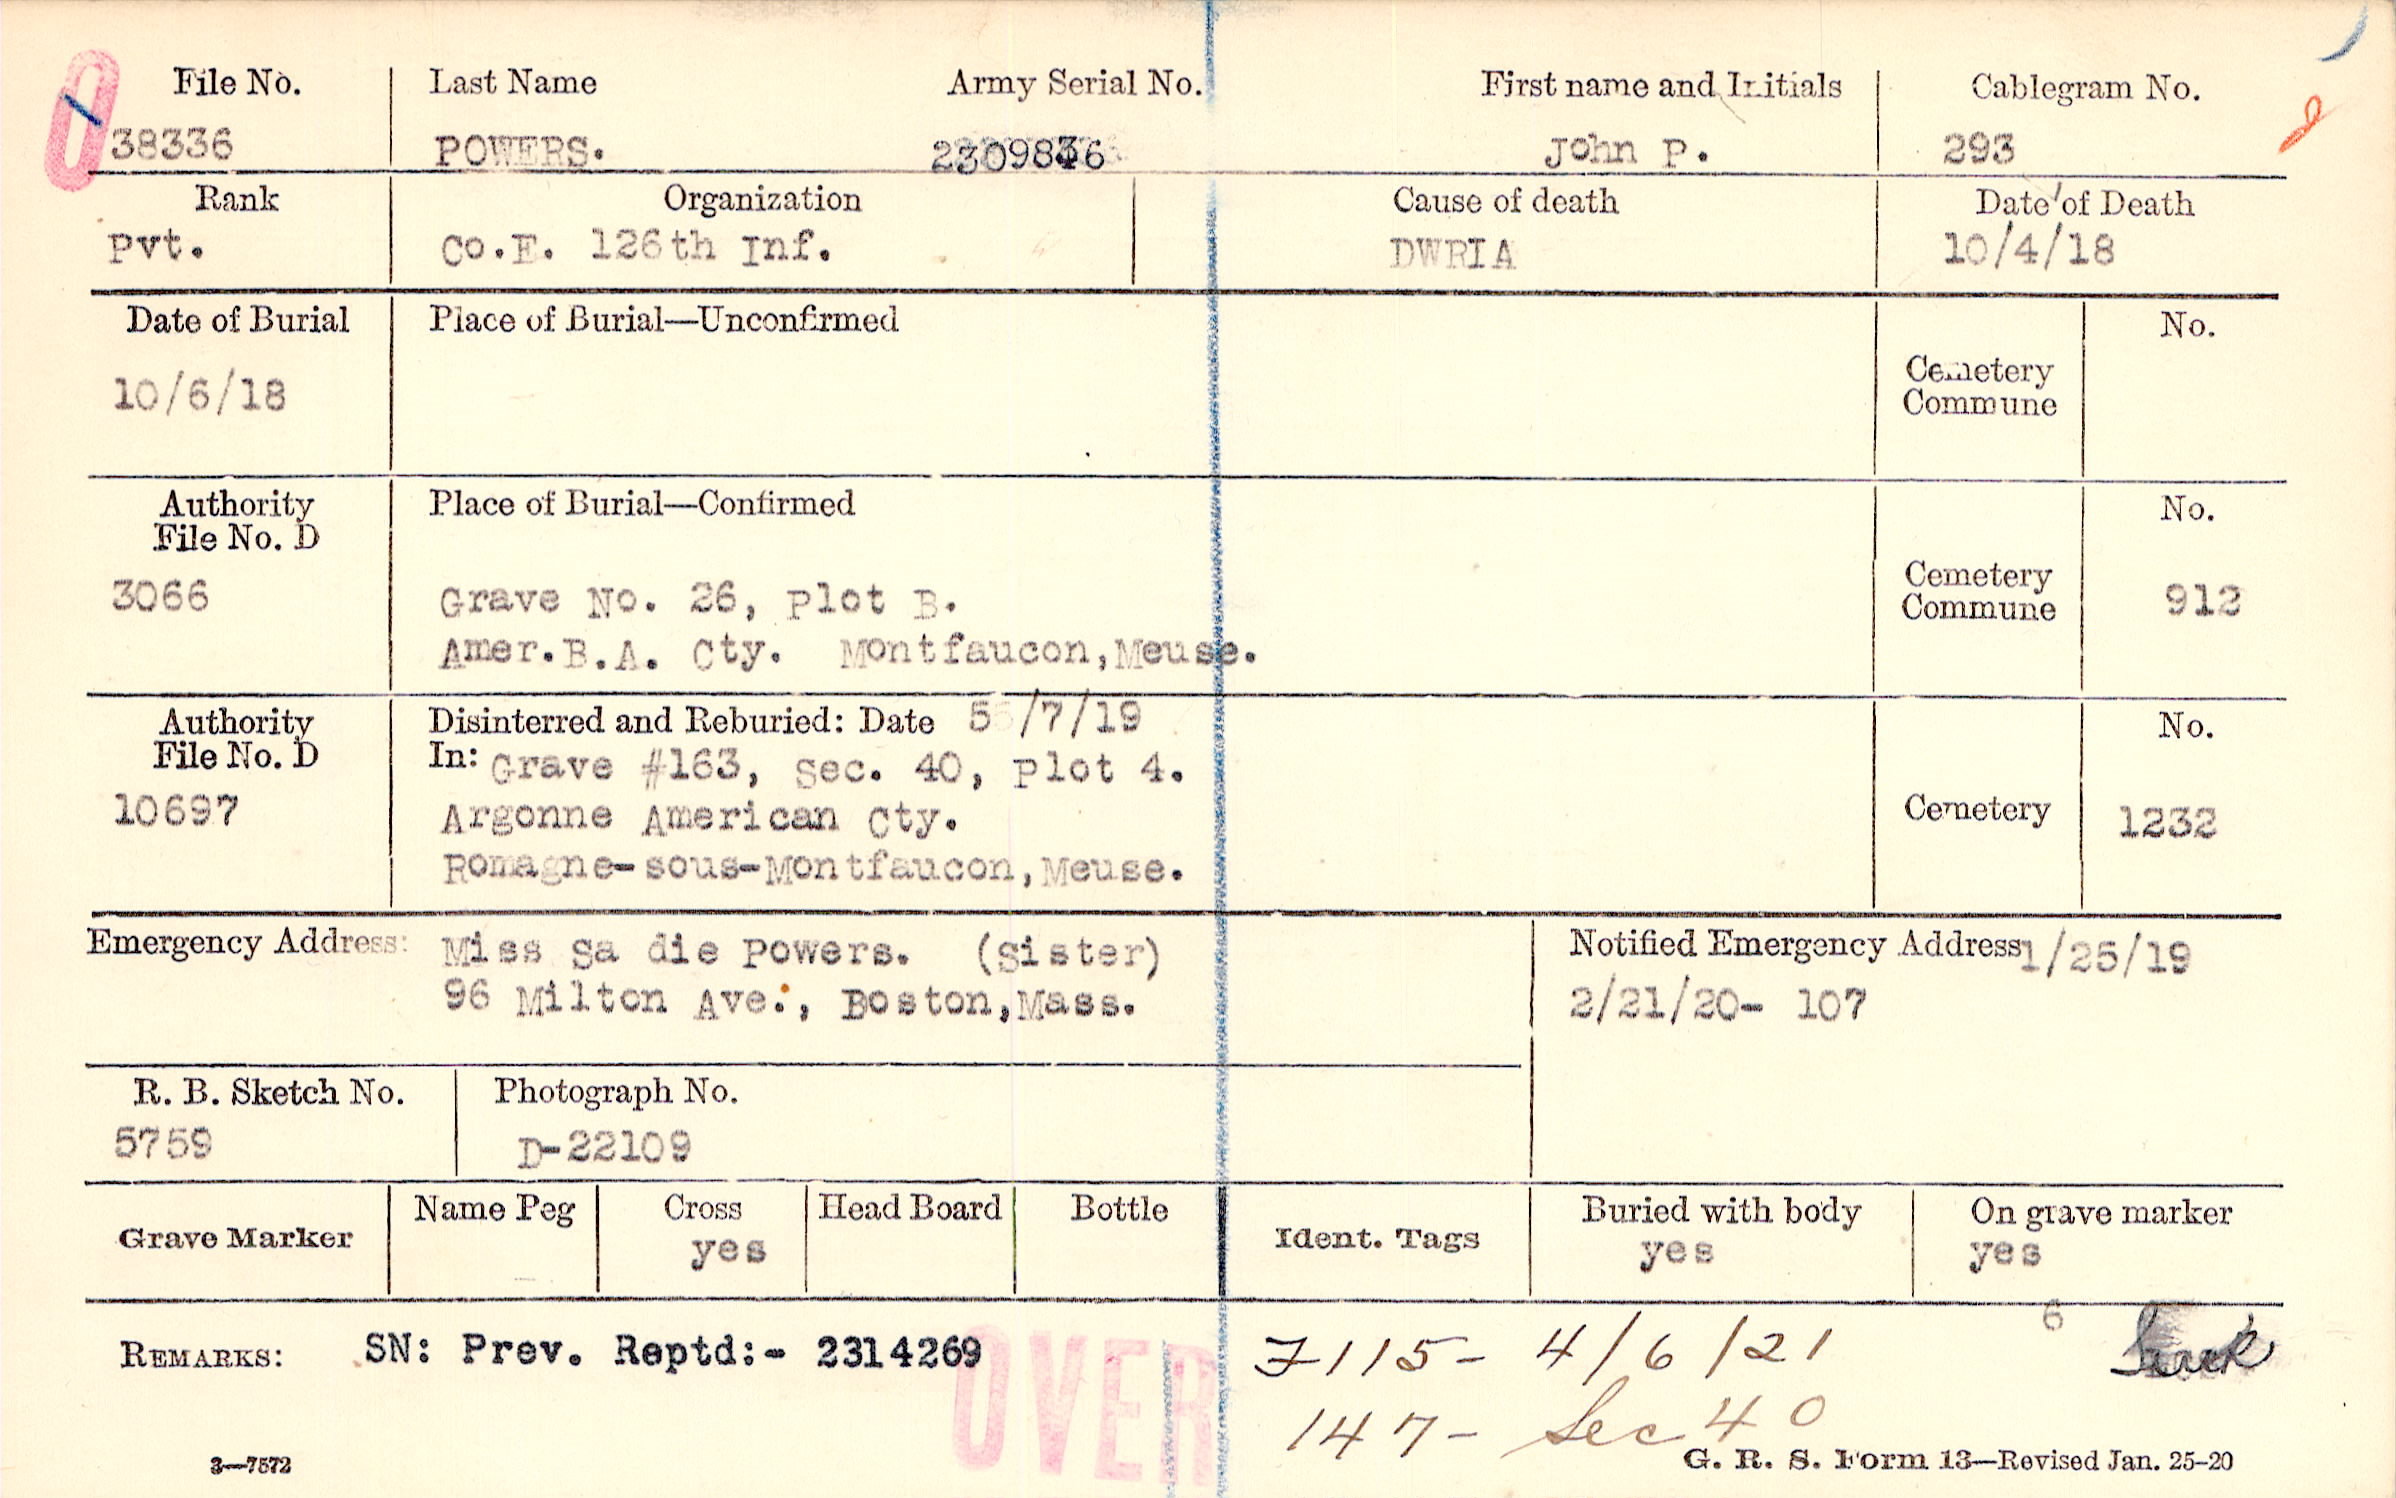 File No. Last Name Army Serial No. First name and Initials Cablegram No.
38336 POWERS. John P. 293
Rank Organization Cause of death Date of Death
Pvt. Co.E. 126th Inf. DWRIA 10/4/18
Date of Burial Place of Burial—Unconfirmed No.
10/6/18 Cemetery
Commune
Authority Place of Burial—Confirmed No.
File No. D
3066 Grave No. 26, Plot B. Cemetery
Commune 912
Amer.B.A. Cty. Montfaucon,Meuse.
Authority Disinterred and Reburied: Date 5/7/19 No.
File No. D In: Grave #163, Sec. 40, Plot 4.
10697 Argonne American Cty. Cemetery 1232
Romagne-sous-Montfaucon,Meuse.
Emergency Address: Miss Sa die Powers. (Sister) Notified Emergency Address 1/25/19
96 Milton Ave., Boston,Mass. 2/21/20- 107
R. B. Sketch No. Photograph No.
5759 D-22109
Grave Marker Name Peg Cross Head Board Bottle Ident. Tags Buried with body On grave marker
yes yes yes
6
REMARKS: SN: Prev. Reptd:- 2314269 7115- 4/6/21
OVER
147- Sec 40
3—7572 G. R. S. Form 13—Revised Jan. 25-20